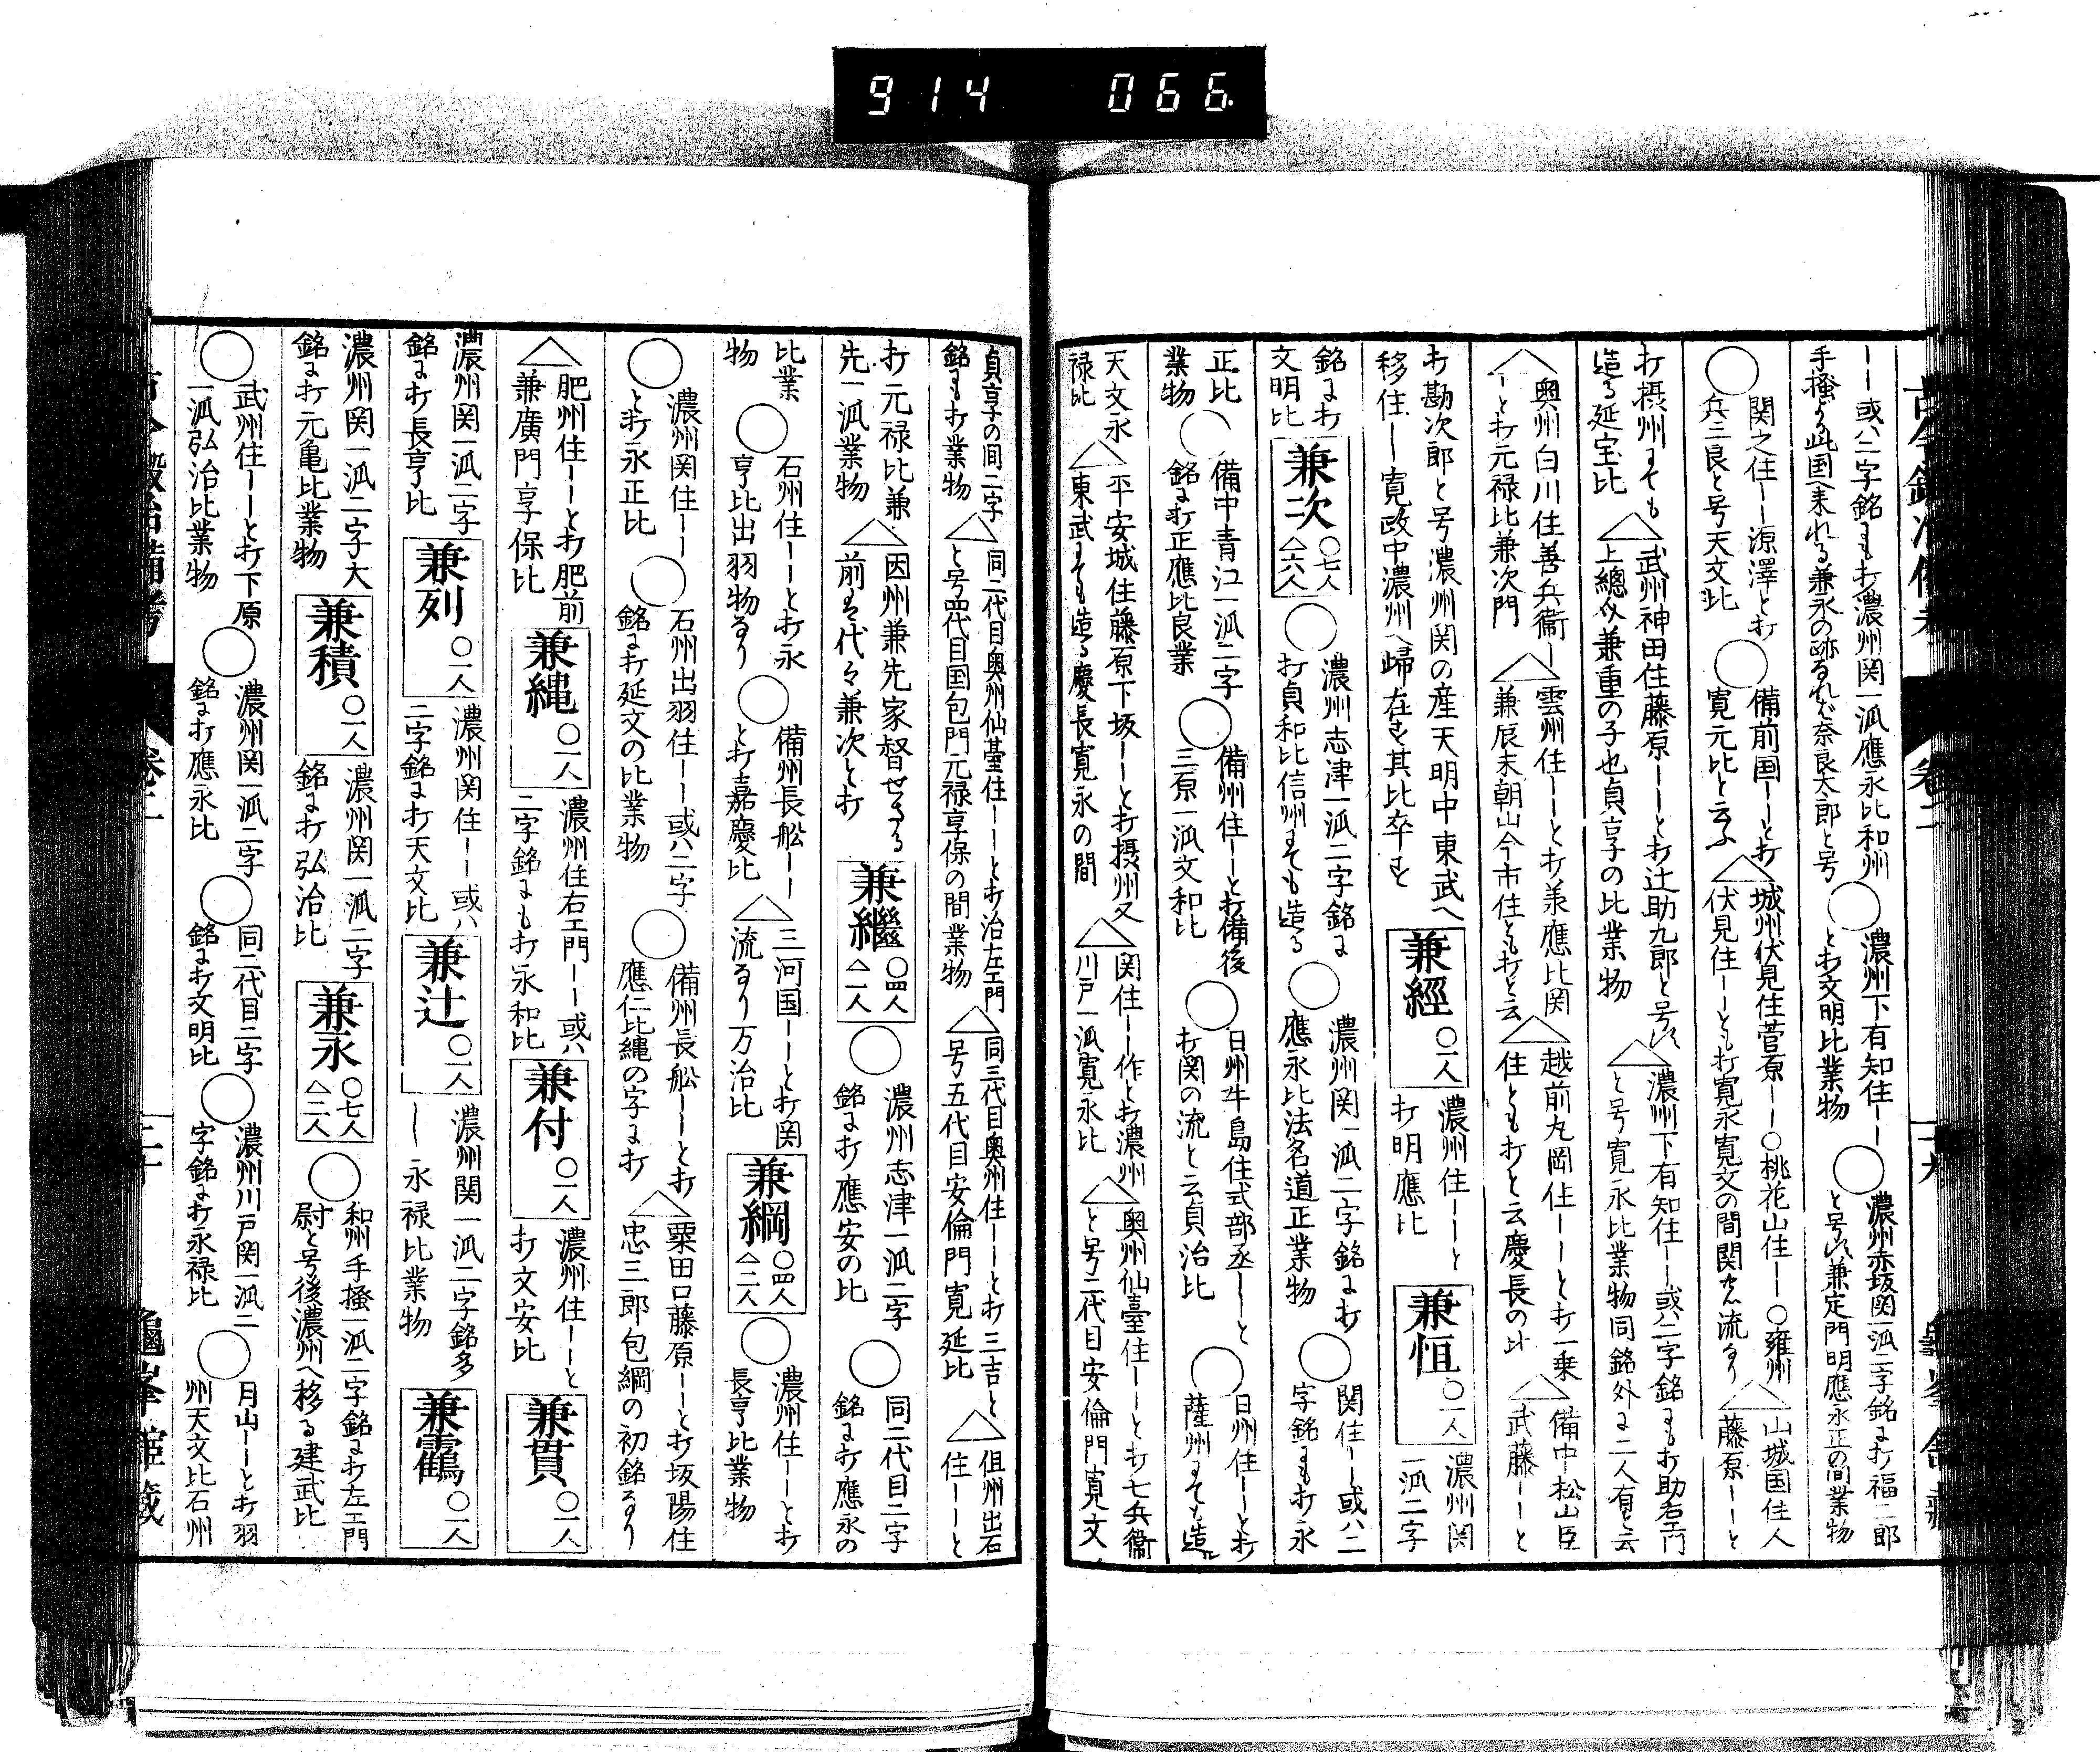 914 066.
ーー或ハ二字銘にも打濃州関一派應永比和州
手掻より此国へ来れる兼永の跡なれど奈良太郎と号
○濃州下有知住ーー
と打文明比業物
○濃州赤坂関一派二字銘に打福二郎
と号以兼定門明應永正の間業物
○関之住ーー源澤と打
兵二良と号天文比
○備前国ーーと打
寛元比と云ふ
△城州伏見住菅原ーー○桃花山住ーー○雍州
伏見住ーーとも打寛永寛文の間関の流なり
△山城国住人
藤原ーーと
打摂州にても
造る延宝比
△武州神田住藤原ーーと打辻助九郎と号
上總介兼重の子也貞享の比業物
△濃州下有知住ーー或ハ二字銘にも打助右エ門
と号寛永比業物同銘外に二人有と云
△奥州白川住善兵衞ー
ーと打元禄比兼次門
△雲州住ーーと打承應比関
兼辰末朝山今市住とも打と云
△越前丸岡住ーーと打一乗
住とも打と云慶長の比
△備中松山臣
武藤ーーと
打勘次郎と号濃州関の産天明中東武へ
移住ー寛政中濃州へ歸在す其比卒す
兼經 ○一人
濃州住ーーと
打明應比
兼恒 ○一人
濃州関
一派二字
銘に打
文明比
兼次 ○七人 △六人
○濃州志津一派二字銘に
打貞和比信州にても造る
○濃州関一派二字銘に打
應永比法名道正業物
○関住ーー或ハ二
字銘にも打永
正比
業物
○備中青江一派二字
銘に打正應比良業
○備州住ーーと打備後
三原一派文和比
○日州牛島住式部丞ーーと
打関の流と云貞治比
○日州住ーーと打
薩州にても造ル
天文永
禄比
△平安城住藤原下坂ーーと打摂州又
東武にても造る慶長寛永の間
△関住ーー作と打濃州
川戸一派寛永比
△奥州仙臺住ーーと打七兵衞
と号二代目安倫門寛文
貞享の間二字
銘にも打業物
△同二代目奥州仙臺住ーーと打治左エ門
と号四代目国包門元禄享保の間業物
△同三代目奥州住ーーと打三吉と
号五代目安倫門寛延比
△但州出石
住ーーと
打元禄比兼
先一派業物
△因州兼先家督せざる
前に代々兼次と打
兼繼 ○四人 △一人
○濃州志津一派二字
銘に打應安の比
○同二代目二字
銘に打應永の
比業
物
○石州住ーーと打永
享比出羽物なり
○備州長舩ーー
と打嘉慶比
△三河国ーーと打関
流なり万治比
兼綱 ○四人 △二人
○濃州住ーーと打
長亨比業物
○濃州関住ーー
と打永正比
○石州出羽住ーー或ハ二字
銘に打延文の比業物
○備州長舩ーーと打
應仁比縄の字に打
△粟田口藤原ーーと打坂陽住
忠三郎包綱の初銘なり
△肥州住ーーと打肥前
兼廣門享保比
兼縄 ○一人
濃州住右エ門ーー或ハ
二字銘にも打永和比
兼付 ○一人
濃州住ーーと
打文安比
兼貫 ○一人
濃州関一派二字
銘に打長亨比
兼列 ○一人
濃州関住ーー或ハ
二字銘に打天文比
兼辻 ○一人
濃州関一派二字銘多
ー永禄比業物
兼靏 ○一人
濃州関一派二字大
銘に打元亀比業物
兼積 ○一人
濃州関一派二字
銘に打弘治比
兼永 ○七人 △二人
○和州手掻一派二字銘に打左エ門
尉と号後濃州へ移る建武比
○武州住ーーと打下原
一派弘治比業物
○濃州関一派二字
銘に打應永比
○同二代目二字
銘に打文明比
○濃州川戸関一派二
字銘に打永禄比
○月山ーーと打羽
州天文比石州